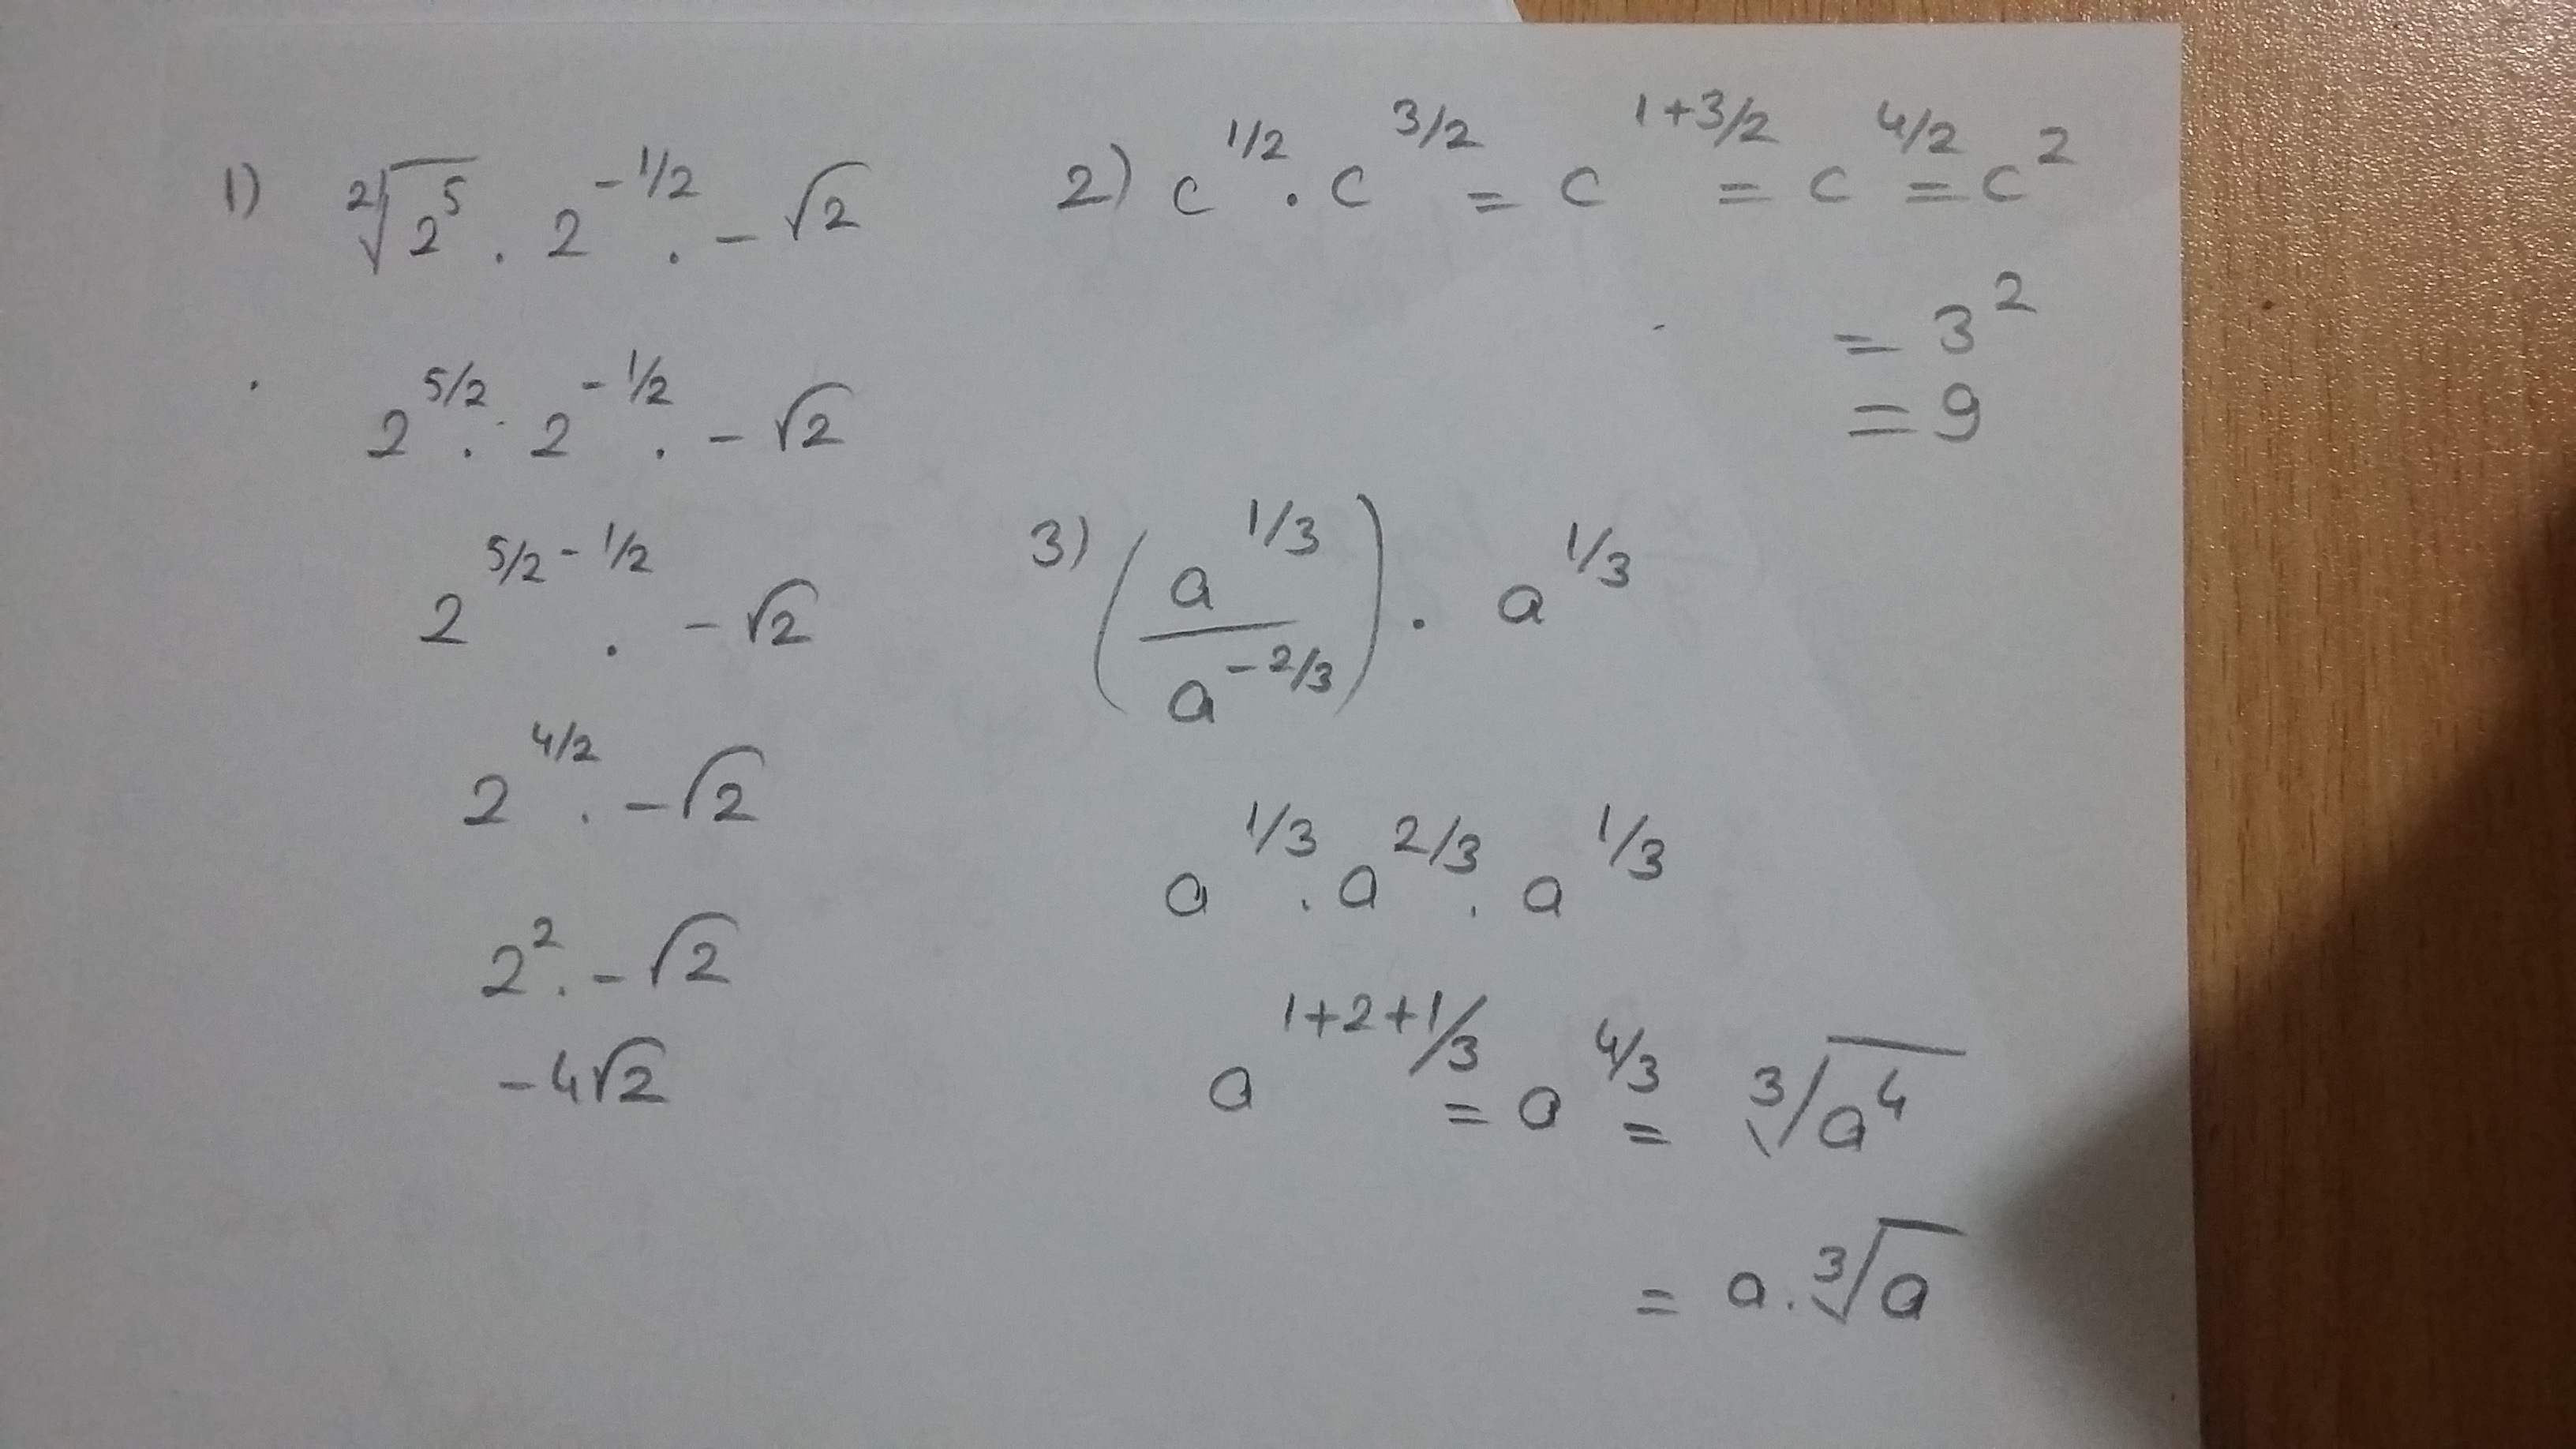 1) ²√2⁵ . 2^-1/2 . -√2
2^5/2 . 2^-1/2 . -√2
2^5/2 - 1/2 . -√2
2^4/2 . -√2
2² . -√2
-4√2
2) c^1/2 . c^3/2 = c^1+3/2 = c^4/2 = c²
= 3²
= 9
3) (a^1/3 / a^-2/3) . a^1/3
a^1/3 . a^2/3 . a^1/3
a^1+2+1/3 = a^4/3 = ³√a⁴
= a . ³√a